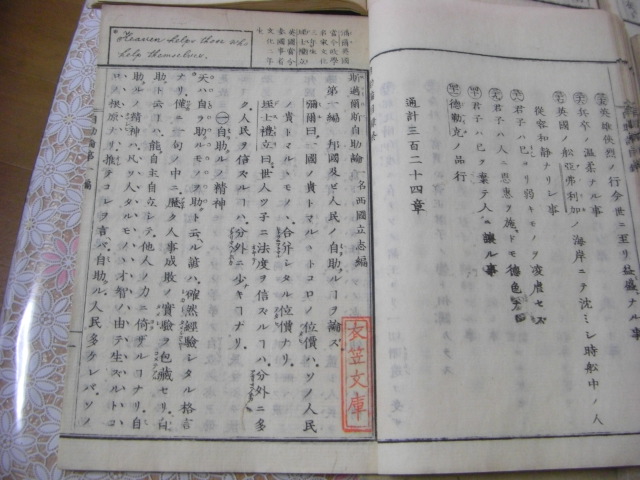 英雄俠烈ノ行今世ニ至リ益盛ナル事
兵卒ノ温柔ナル事
英國ノ舩亞弗利加ノ海岸ニテ沈ミシ時舩中ノ人
從容和静ナリシ事
君子ハ己ヨリ弱キモノヲ凌虐セズ
君子ハ人ニ恩惠ヲ施セドモ德色
君子ハ己ヲ棄テ人ニ讓ル事
德勒克ノ品行
通計三百二十四章
Heaven helps those who
help themselves.
斯邁爾斯自助論 名西國立志編
第一編 邦國及ビ人民ノ自助ルヿヲ論ズ
彌爾曰一國ノ貴トマルヽトコロノ位價ハソノ人民
ノ貴トマルヽモノヽ合シタル位價ナリ
士禮立曰世人ツ子ニ法度ヲ信スルヿハ分外ニ多
ク人民ヲ信スルヿハ分外ニ少キヿナリ
㊀自助ルノ精神
天ハ自ラ助ルモノヲ助クト云ル諺ハ確然經驗シタル格言
ナリ僅ニ一句ノ中ニ歷ク人事成敗ノ實驗ヲ包藏セリ自
助クト云ヿハ能ク自主自立シテ他人ノ力ニ倚ザルヿナリ自
助ルノ精神ハ凡ソ人タルモノヽ才智ノ由テ生ズルトコ
ロノ根原ナリ推テコレヲ言ヘバ自助ル人民多ケレバソノ
衣笠文庫